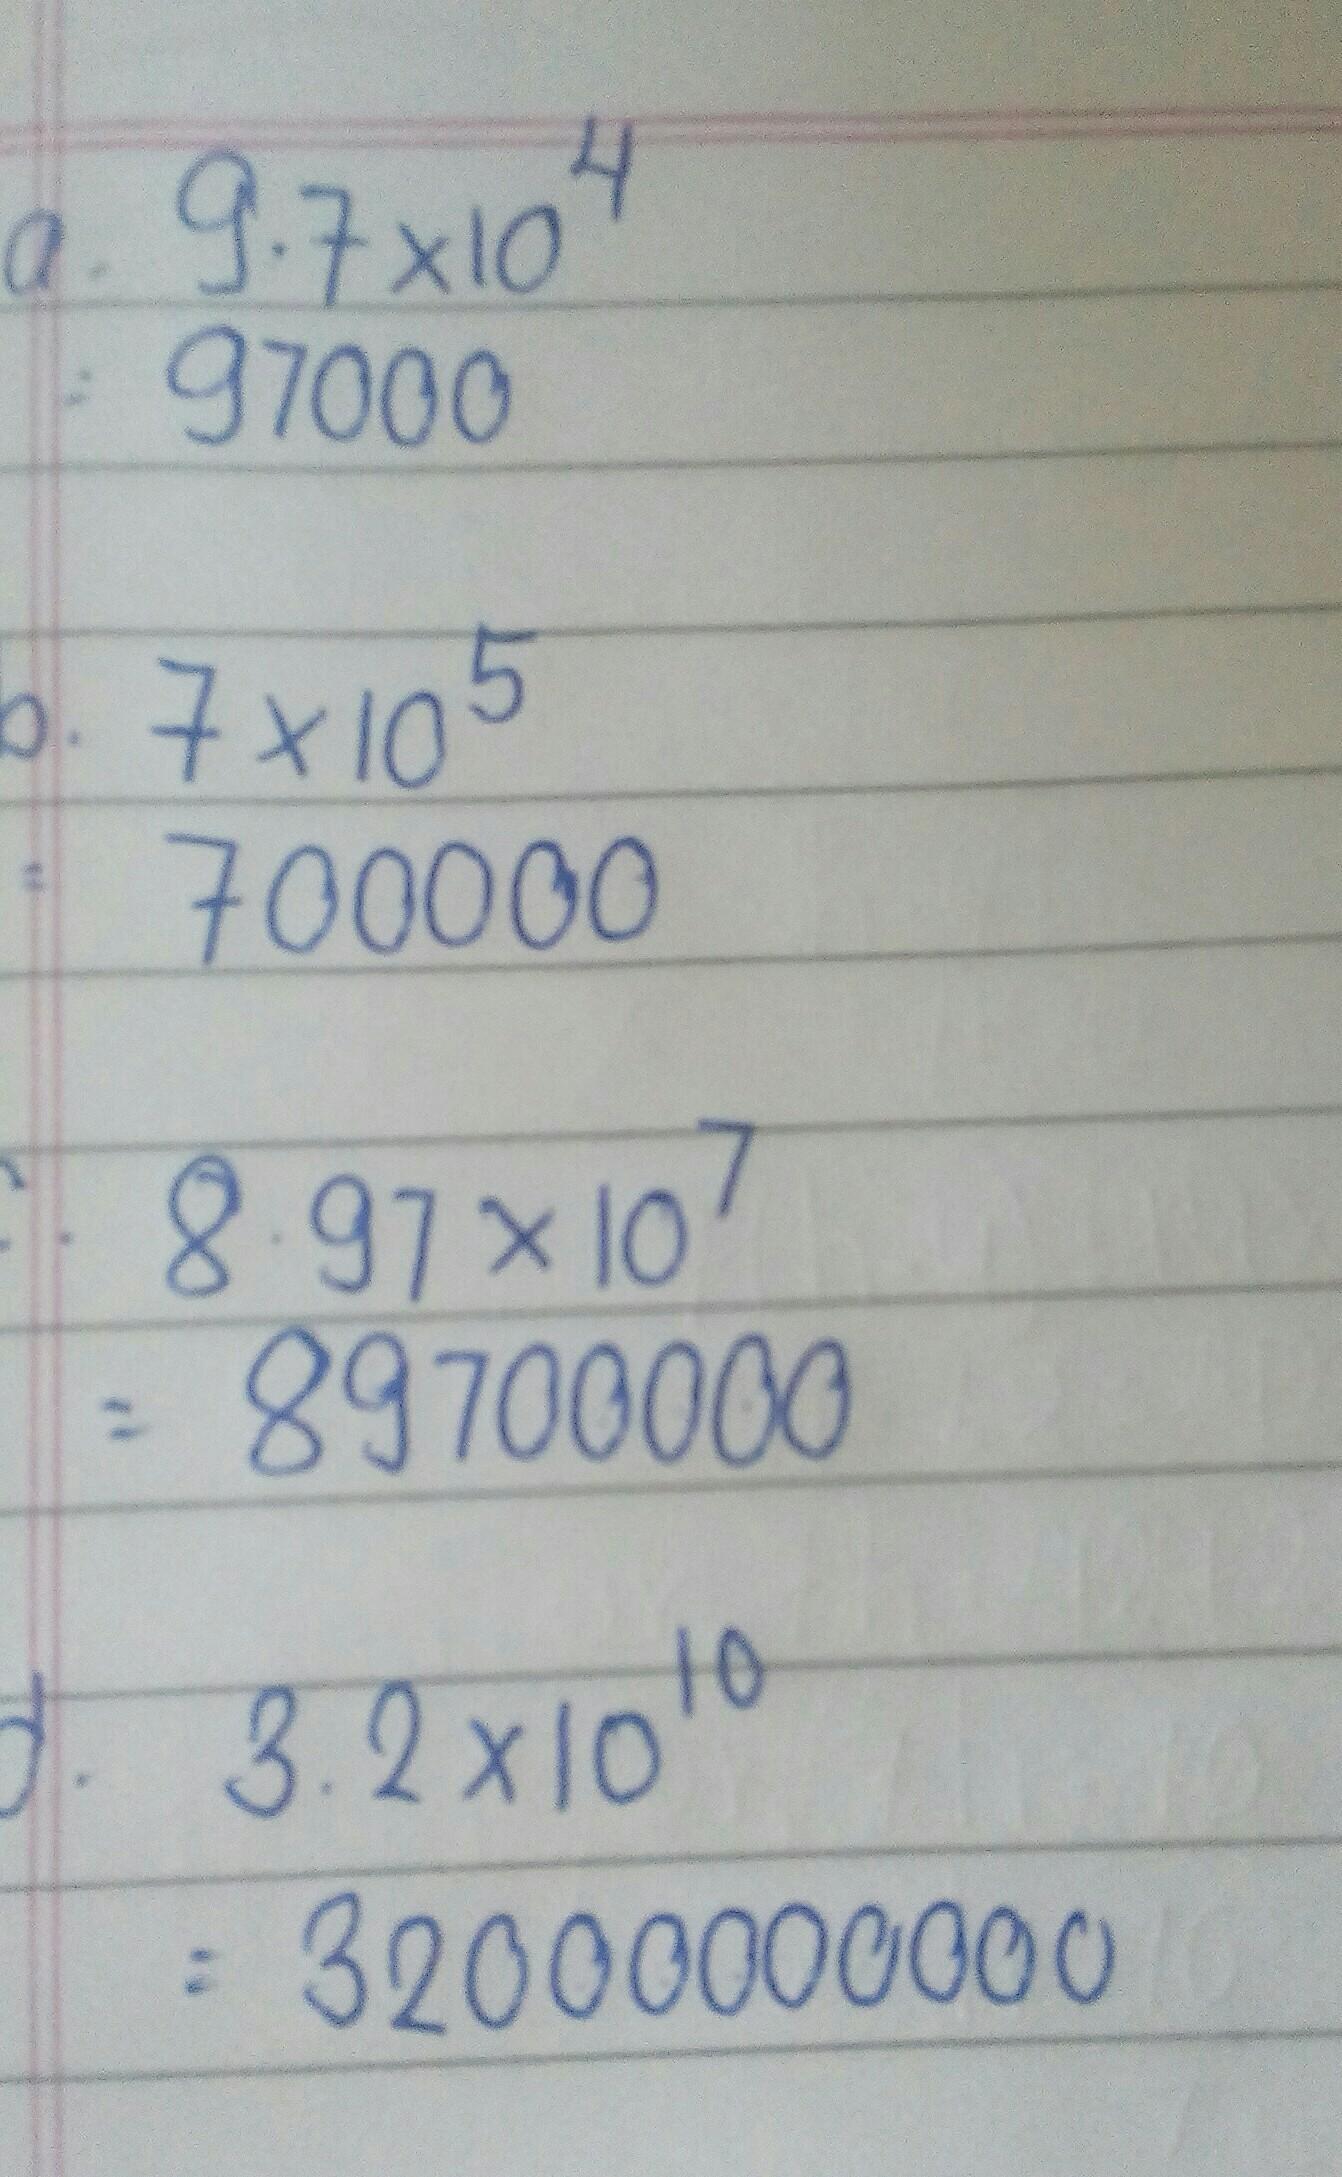 a. 9.7 x 10⁴
= 97000
b. 7 x 10⁵
= 700000
c. 8.97 x 10⁷
= 89700000
d. 3.2 x 10¹⁰
= 32000000000